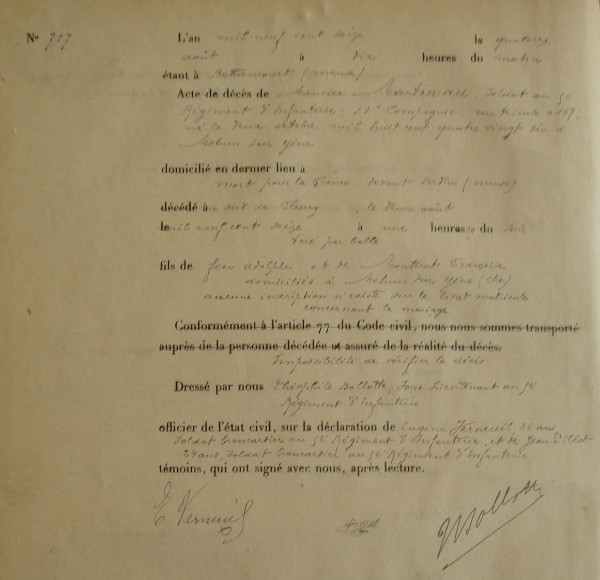 No 717 L'an mil neuf cent seize le quatorze
août à dix heures du matin
étant à (meuse)
Acte de décès de Maurice Martineau, soldat au 56
Régiment d'Infanterie, 11e Compagnie, matricule
né le deux octobre mil huit cent quatre vingt dix à
Mehun sur Yèvre
domicilié en dernier lieu à
mort pour la France devant Verdun (meuse)
décédé à sud de Fleury, le deux août
le mil neuf cent seize à une heures du soir
tué par balle
fils de Jean adolphe et de Françoise
domiciliés à Mehun sur Yèvre (cher)
aucune inscription n'existe sur le livret matricule
concernant le mariage
Conformément à l'article 77 du Code civil, nous nous sommes transporté
auprès de la personne décédée et assuré de la réalité du décès.
Impossibilité de vérifier le décès
Dressé par nous Théophile Bollotte, Sous Lieutenant au 56
Régiment d'Infanterie
officier de l'état civil, sur la déclaration de Eugène Verneuil, ans
Soldat brancardier au 56 Régiment d'Infanterie, et de Jean
24 ans, soldat brancardier au 56 Régiment d'Infanterie
témoins, qui ont signé avec nous, après lecture.
E Verneuil Bollotte